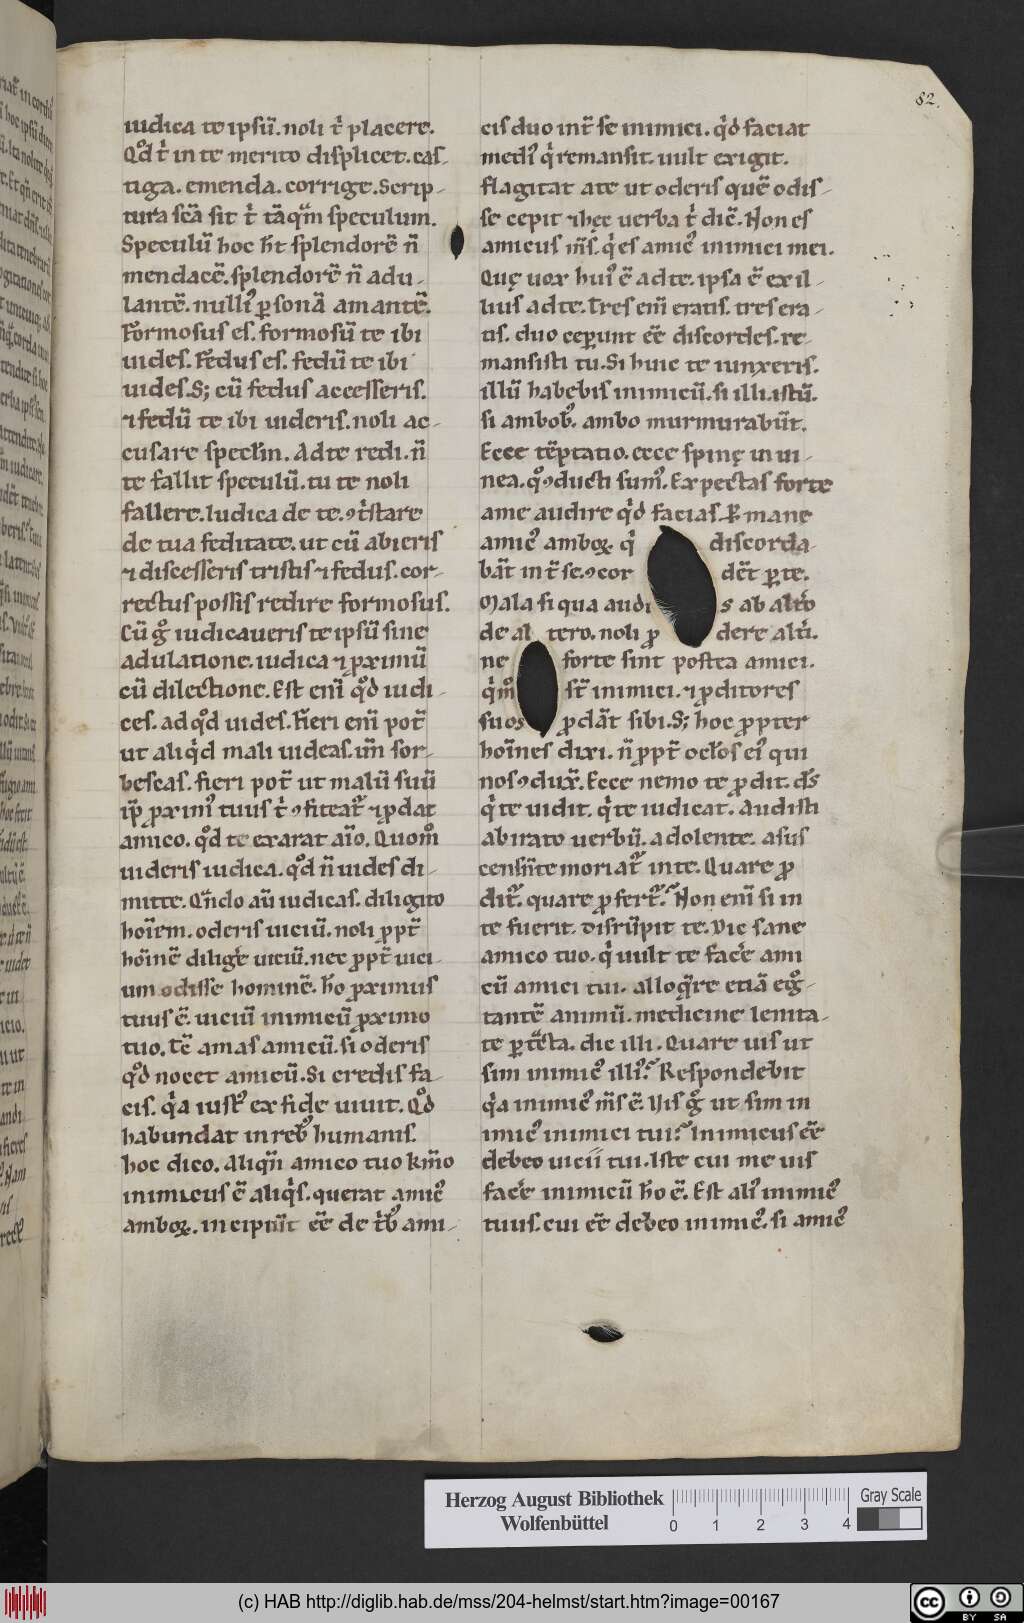 82.
iudica te ipsū. noli t̓ placere.
Qd̊ t̓ in te merito displicet. cas-
tiga. emenda. corrige. Scrip-
tura sc̄a sit t̓ tāqm̄ speculum.
Speculū hoc ht̄ splendorē n̄
mendacē. splendorē n̄ adu-
lantē. nulli᾽ ꝑsonā amantē.
Formosus es. formosū te ibi
uides. Fędus es. fedū te ibi
uides. S; cū fedus accesseris.
⁊ fedū te ibi uideris. noli ac-
cusare specl̄m. Ad te redi. n̄
te fallit speculū. tu te noli
fallere. Iudica de te. ꝯt̓stare
de tua feditate. ut cū abieris
⁊ discesseris tristis ⁊ fedus. cor-
rectus possis redire formosus.
Cū g̊ iudicaueris te ipsū sine
adulatione. iudica ⁊ ꝓximū
cū dilectione. Est eni̅ qd̊ iudi-
ces. ad qd̊ uides. Fieri eni̅ pot̄
ut aliq̓d mali uideas. um̄ for-
bescas. fieri pot̄ ut malū suū
ip̄ ꝓxim᾽ tuus t̓ ꝯfiteat᷑ ⁊ ꝓdat
amico. qd̊ te exarat aīo. Quom̊
uideris iudica. qd̊ n̄ uides di-
mitte. Qn̄do aū iudicas. diligito
hoīem. oderis uiciū. noli ꝓpt̄
hoīnē diligē uiciū. nec ꝓpt̄ uici-
um odisse hominē. ho̅ ꝓximus
tuus ē. uiciū inimicū ꝓximo
tuo. Tē amas amicū. si oderis
qd̊ nocet amicū. Si credis fa-
cis. q̓a iust᾽ ex fide uiuit. Qd̊
habundat in reb᾽ humanis.
hoc dico. Aliqn̄ amico tuo km̄o
inimicus ē aliq̓s. querat amic᾽
amboꝝ. incipiūt eē de t̓b᾽ ami-
cis duo int̄ se inimici. q̓d faciat
medi᾽ q̓ remansit. uult exigit.
flagitat a te ut oderis quē odis-
se cepit ⁊ hęc uerba t̓ dic̄. Non es
amicus m̄s. q̓ es amic᾽ inimici mei.
Quę uox hui᾽ ē ad te. ipsa ē ex il-
lius ad te. Tres eni̅ eratis. tres era-
tis. duo ceꝑunt eē discordes. re-
mansisti tu. Si huic te iunxeris.
illū habebis inimicū. si illi. istū.
si ambob᾽. ambo murmurabūt.
Ecce tēptatio. ecce spinę in ui-
nea. q̊ ꝯducti sum᾽. Expectas forte
a me audire q̓d facias. Ꝑmane
amic᾽ amboꝝ. q̓ discorda-
bāt int̄ se. ꝯcor dēt ꝑ te.
Mala si qua audi s ab alt̓o
de al tero. noli ꝓ dere alt̓i.
ne forte sint postea amici.
q̓m̊ st̄ inimici. ⁊ ꝓditores
suos ꝓdāt sibi. S; hoc ꝓpter
hoīnes dixi. n̄ ꝓpt̄ ocl̄os ei᾽ qui
nos ꝯdux̄. Ecce nemo te ꝓdit. ds̄
q̓ te uidit. q̓ te iudicat. Audisti
ab irato uerbū. a dolente. a sus
censn̄te moriat᷑ in te. Quare ꝓ
dit᷑. quare ꝓfert᷑. Non eni̅ si in
te fuerit. disrūpit te. Dic sane
amico tuo. q̓ uult te facē ami
cū amici tui. alloq̓re etiā eg̊-
tantē animū. medicine lenita-
te ꝑtc̄ta. dic illi. Quare uis ut
sim inimic᾽ illi᾽. Respondebit
q̓a inimic᾽ m̄s ē. Vis g̊ ut sim in
imic᾽ inimici tui. Inimicus eē
debeo uicii tui. Iste cui me uis
facē inimicū ho̅ ē. Est ali᾽ inimic᾽
tuus. cui eē debeo inimic᾽. si amic᾽
Herzog August Bibliothek
Wolfenbüttel
0 1 2 3 4
Gray Scale
(c) HAB http://diglib.hab.de/mss/204-helmst/start.htm?image=00167
cc BY SA